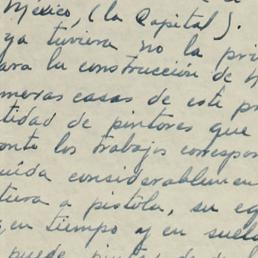 México, (la Capital).
ya tuviera no la pri
ara la construcción de
meras casas de este pr
tidad de pintores que
onto los trabajos correspo
uída considerablemen
tura a pistola, su eq
en tiempo y en suel
puede